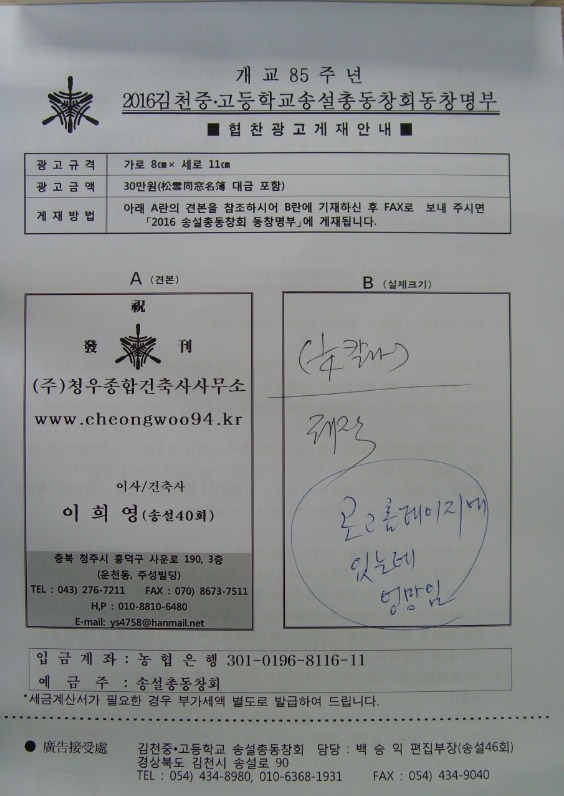 개교 85 주년
2016김천중·고등학교송설총동창회동창명부
■ 협찬광고게재안내 ■
광고규격 가로 8㎝× 세로 11㎝
광고금액 30만원(松雪同窓名簿 대금 포함)
게재방법 아래 A란의 견본을 참조하시어 B란에 기재하신 후 FAX로 보내 주시면
「2016 송설총동창회 동창명부」에 게재됩니다.
A (견본)
祝
發 刊
(주)청우종합건축사사무소
www.cheongwoo94.kr
이사/건축사
이 희 영(송설40회)
충북 청주시 흥덕구 사운로 190, 3층
(운천동, 주성빌딩)
TEL : 043) 276-7211 FAX : 070) 8673-7511
H,P : 010-8810-6480
E-mail: ys4758@hanmail.net
B (실제크기)
칼라)
제작
로고홈페이지에
있는데
엉망임
입금계좌 : 농협은행 301-0196-8116-11
예 금 주 : 송설총동창회
*세금계산서가 필요한 경우 부가세액 별도로 발급하여 드립니다.
● 廣告接受處 김천중·고등학교 송설총동창회 담당 : 백 승 익 편집부장(송설46회)
경상북도 김천시 송설로 90
TEL : 054) 434-8980, 010-6368-1931 FAX : 054) 434-9040